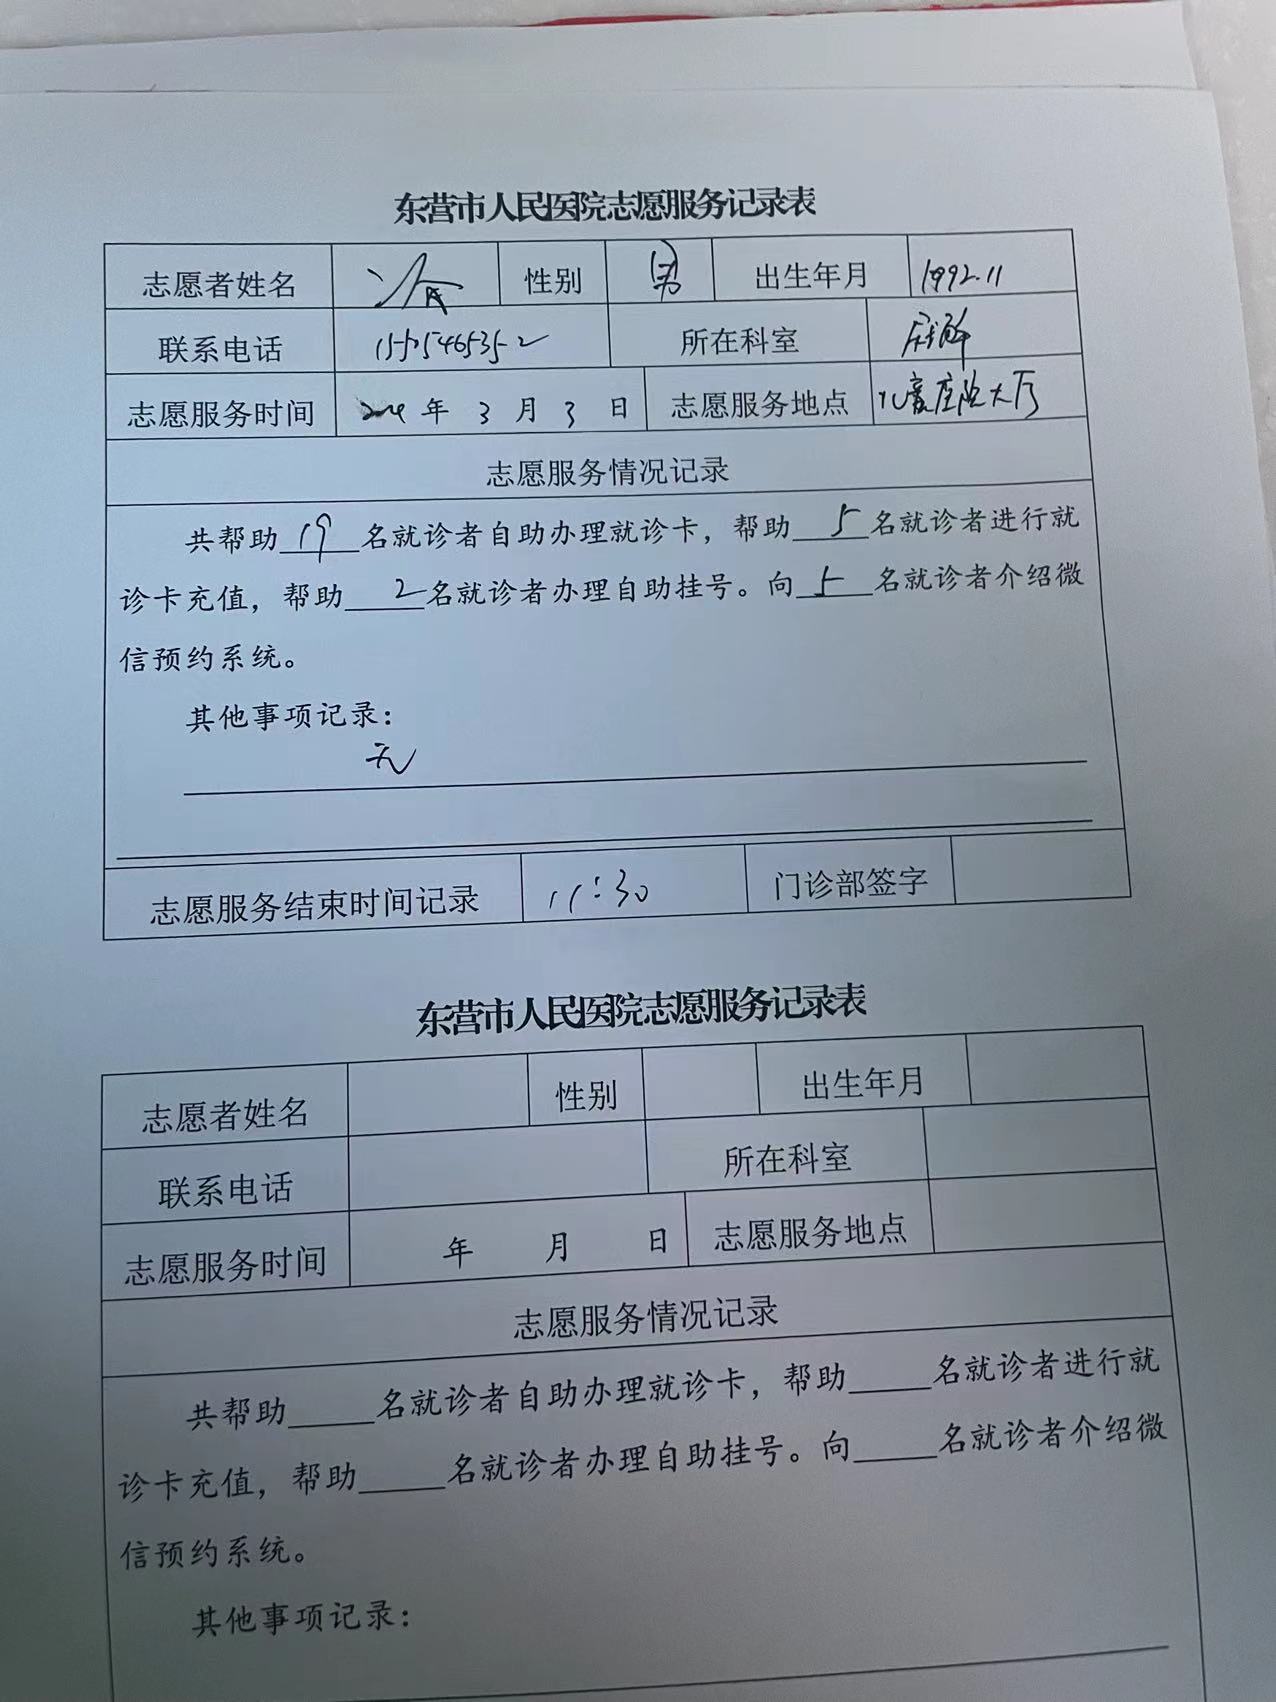 东营市人民医院志愿服务记录表
志愿者姓名 性别 男 出生年月 1992.11
联系电话 所在科室
志愿服务时间 2024 年 3 月 3 日 志愿服务地点 儿童医院大厅
志愿服务情况记录
共帮助 19 名就诊者自助办理就诊卡，帮助 5 名就诊者进行就
诊卡充值，帮助 2 名就诊者办理自助挂号。向 5 名就诊者介绍微
信预约系统。
其他事项记录：
无
志愿服务结束时间记录 11:30 门诊部签字
东营市人民医院志愿服务记录表
志愿者姓名 性别 出生年月
联系电话 所在科室
志愿服务时间 年 月 日 志愿服务地点
志愿服务情况记录
共帮助_____名就诊者自助办理就诊卡，帮助_____名就诊者进行就
诊卡充值，帮助_____名就诊者办理自助挂号。向_____名就诊者介绍微
信预约系统。
其他事项记录：